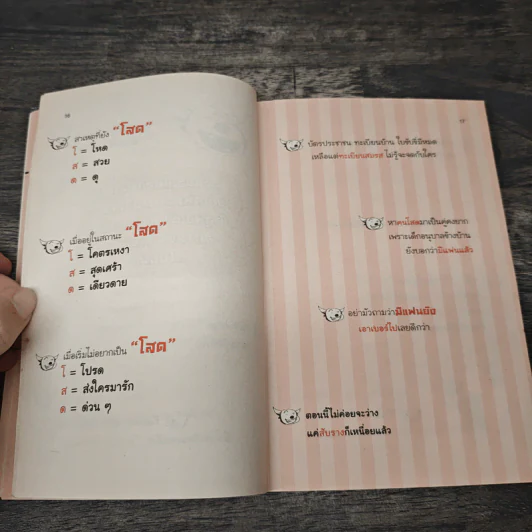 16
สาเหตุที่ยัง "โสด"
โ = โหด
ส = สวย
ด = ดุ
เมื่ออยู่ในสถานะ "โสด"
โ = โคตรเหงา
ส = สุดเศร้า
ด = เดียวดาย
เมื่อเริ่มไม่อยากเป็น "โสด"
โ = โปรด
ส = ส่งใครมารัก
ด = ด่วน ๆ
17
บัตรประชาชน ทะเบียนบ้าน ใบขับขี่มีหมด
เหลือแต่ทะเบียนสมรส ไม่รู้จะจดกับใคร
หาคนโสดมาเป็นคู่คงยาก
เพราะเด็กอนุบาลข้างบ้าน
ยังบอกว่ามีแฟนแล้ว
อย่ามัวถามว่ามีแฟนยัง
เอาเบอร์ไปเลยดีกว่า
ตอนนี้ไม่ค่อยจะว่าง
แค่สับรางก็เหนื่อยแล้ว